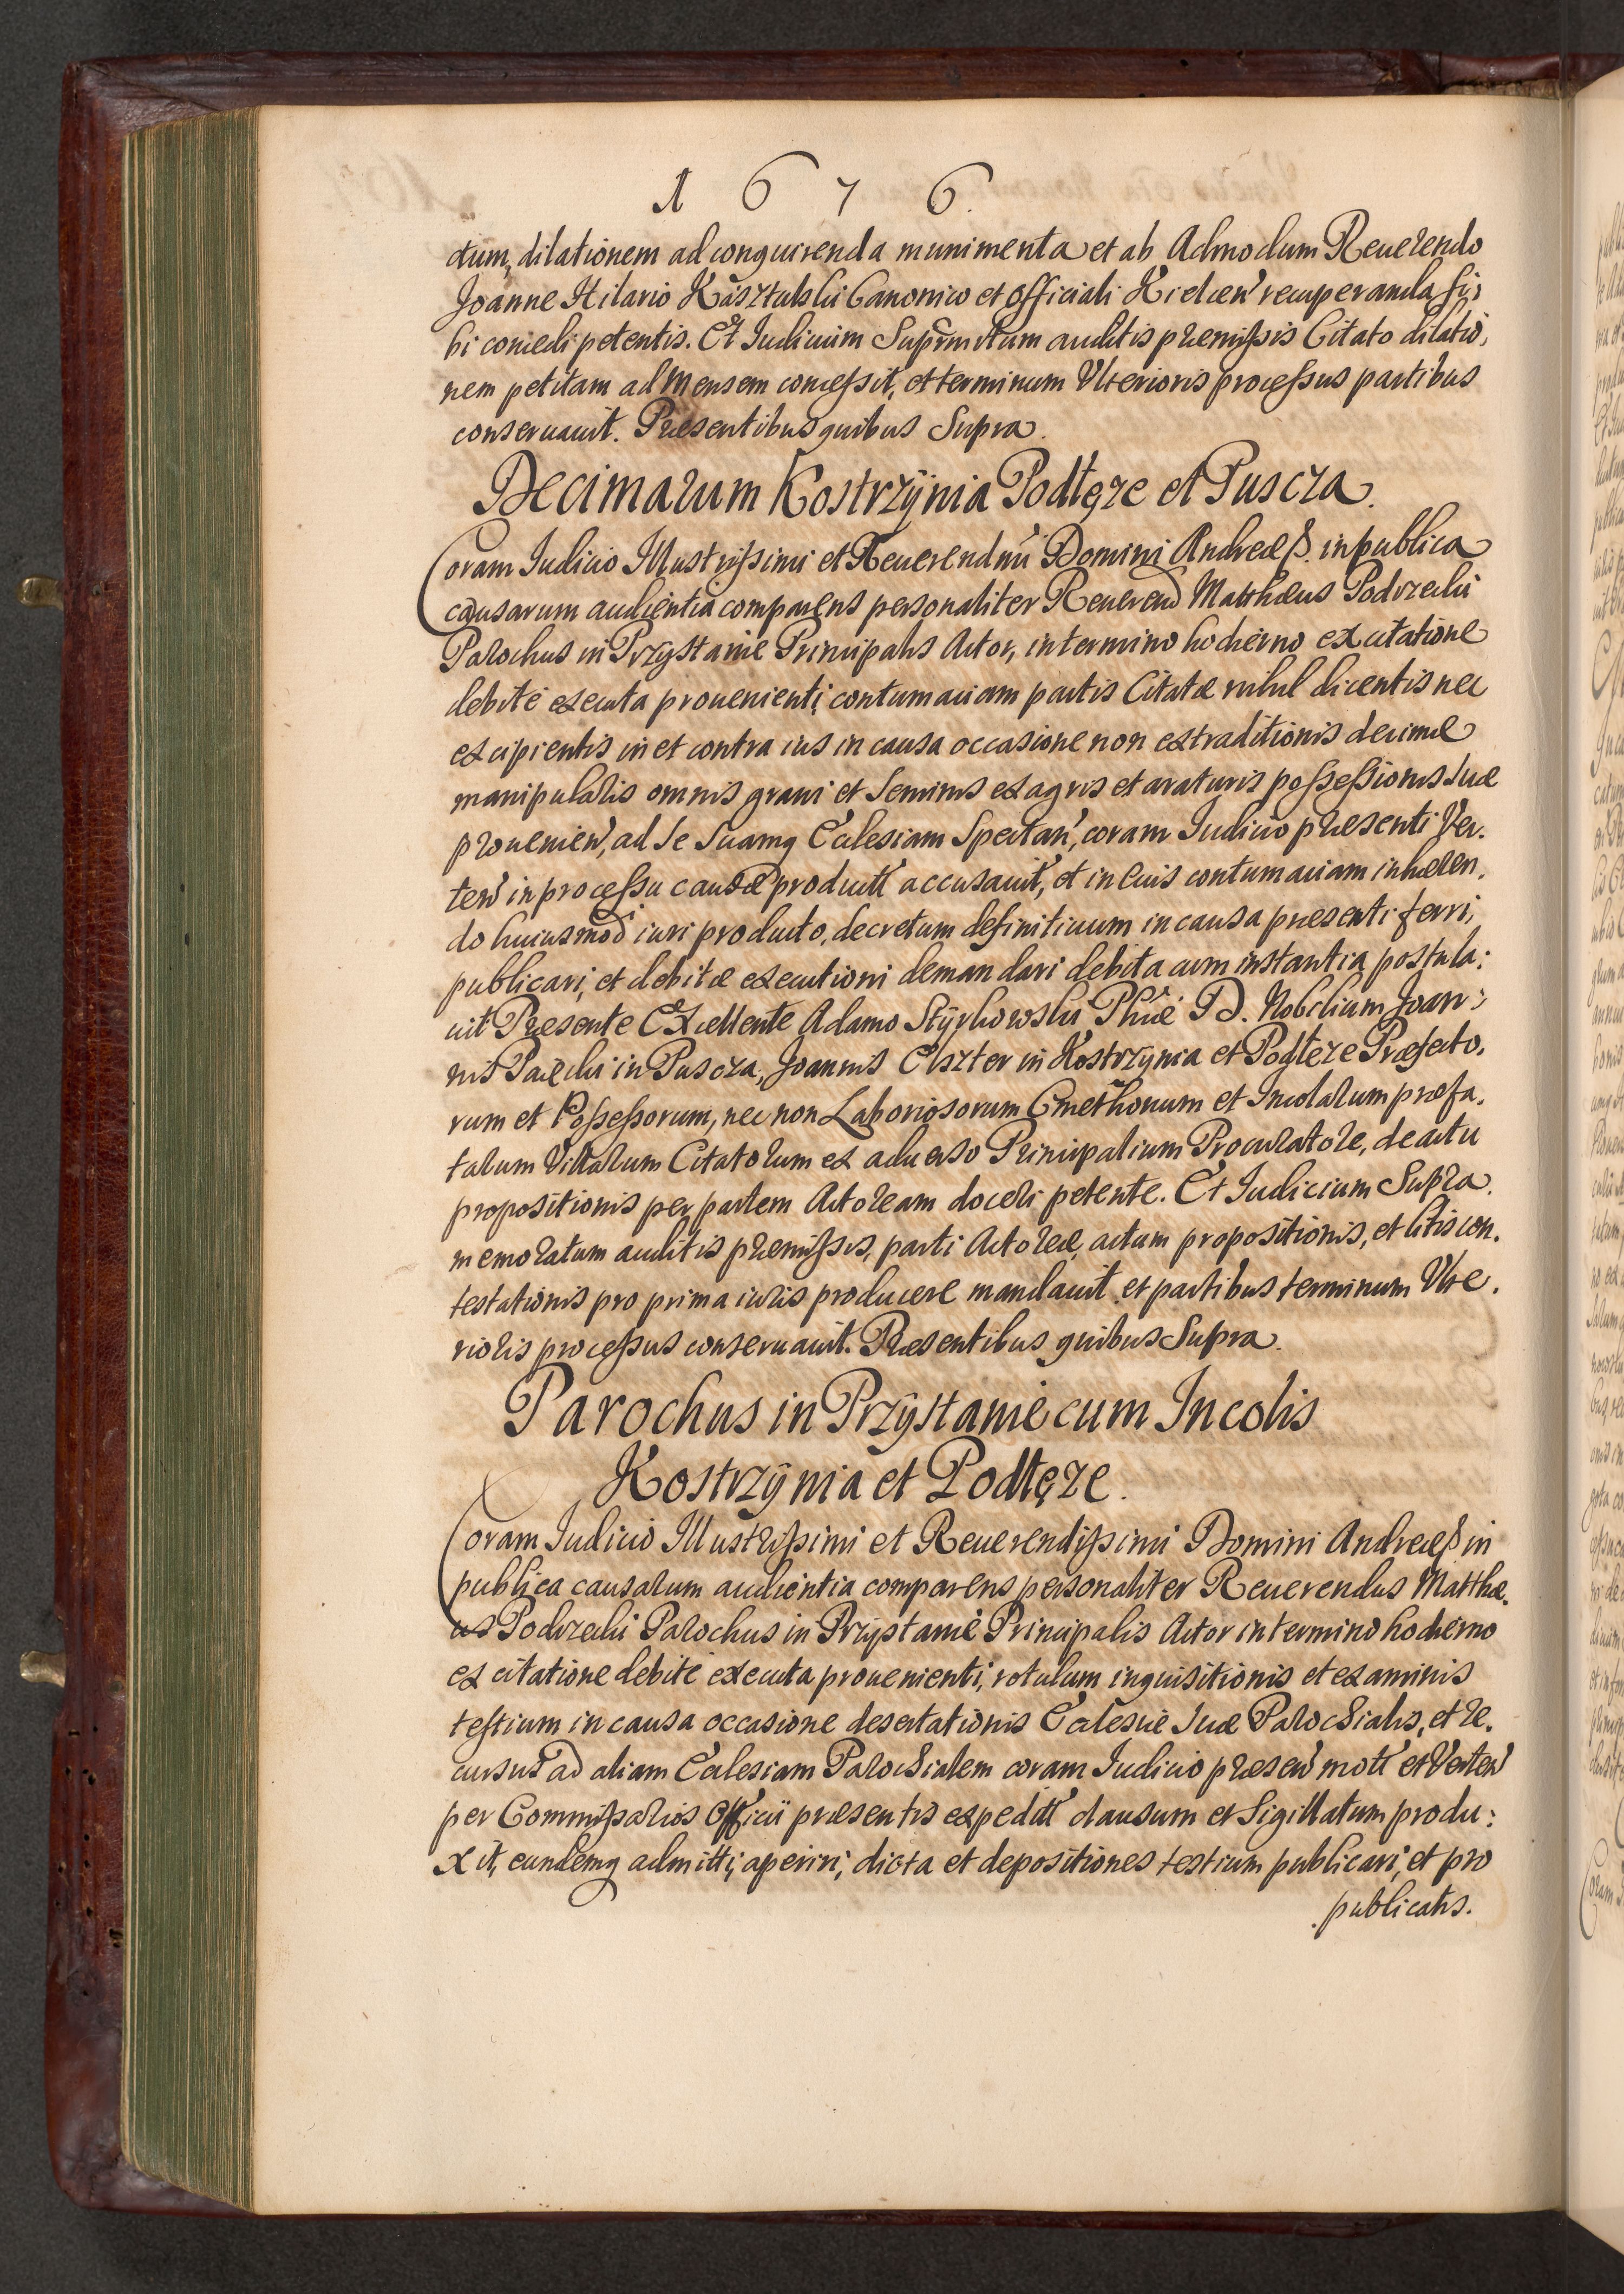 1676.
ctum, dilationem ad conquirenda munimenta et ab Admodum Reuerendo
Joanne Hilario Canonico et Officiali Kielcen̄ recuperanda si,
bi concedi petentis. Et Judicium Suprmrtum auditis præmissis Citato dilatio,
nem petitam ad Mensem concessit, et terminum Vlterioris processus partibus
conseruauit. Præsentibus quibus Supra.
Decimarum Kostrzÿnia Podłęze et Puscza.
Coram Judicio Illustrissimi et Reuerendmī Domini Andreæ ß. in publica
causarum audientia comparens personaliter Reuerend Matthæus Podrzecki
Parochus in Przÿstanie Principalis Actor, in termino hodierno ex citatione
debite executa prouenienti, contumaciam partis Citatæ nihil dicentis nec
excipientis in et contra ius in causa occasione non extraditionis decimæ
manipularis omnis grani et Seminis ex agris et araturis possessionis suæ
prouenien̄, ad se suamq Ecclesiam Spectan̄, coram Judicio præsenti Ver.
ten̄ in processu causæ productt accusauit, et in eius contumaciam inhæren.
do huiusmod iuri producto, decretum definitiuum in causa præsenti ferri,
publicari, et debitæ executioni demandari debita cum instantia postula:
uit Præsente Excellente Adamo Stÿrkowski Phiæ D. Nobilium Joan:
nis in Puscza, Joannis Elszter in Kostrzÿnia et Podłęze Præfecto.
rum et Possessorum, nec non Laboriosorum Cmethonum et Incolarum præfa.
tarum Villarum Citatorum ex aduerso Principalium Procuratore, de actu
propositionis per partem Actoream doceri petente. Et Judicium Supra.
memoratum auditis præmissis, parti Actoreæ, actum propositionis, et litis con.
testationis pro prima iuris producere mandauit et partibus terminum Vlte.
rioris processus conseruauit. Præsentibus quibus Supra.
Parochus in Przÿstanie cum Incolis
Kostrzÿnia et Podłęze.
Coram Judicio Illustrissimi et Reuerendissimi Domini Andreæ ß in
publica causarum audientia comparens personaliter Reuerendus Matthæ.
us Podrzecki Parochus in Przÿstanie Principalis Actor in termino hodierno
ex citatione debite executa prouenienti, rotulum inquisitionis et examinis
testium in causa occasione desertationis Ecclesiæ suæ Parochialis, et re.
cursus ad aliam Ecclesiam Parochialem coram Judicio præsen̄ mott et Verten̄
per Commissarios Officii præsentis expeditt clausum et Sigillatum produ:
xit, eundemq admitti, aperiri, dicta et depositiones testium publicari, et pro
publicatis.